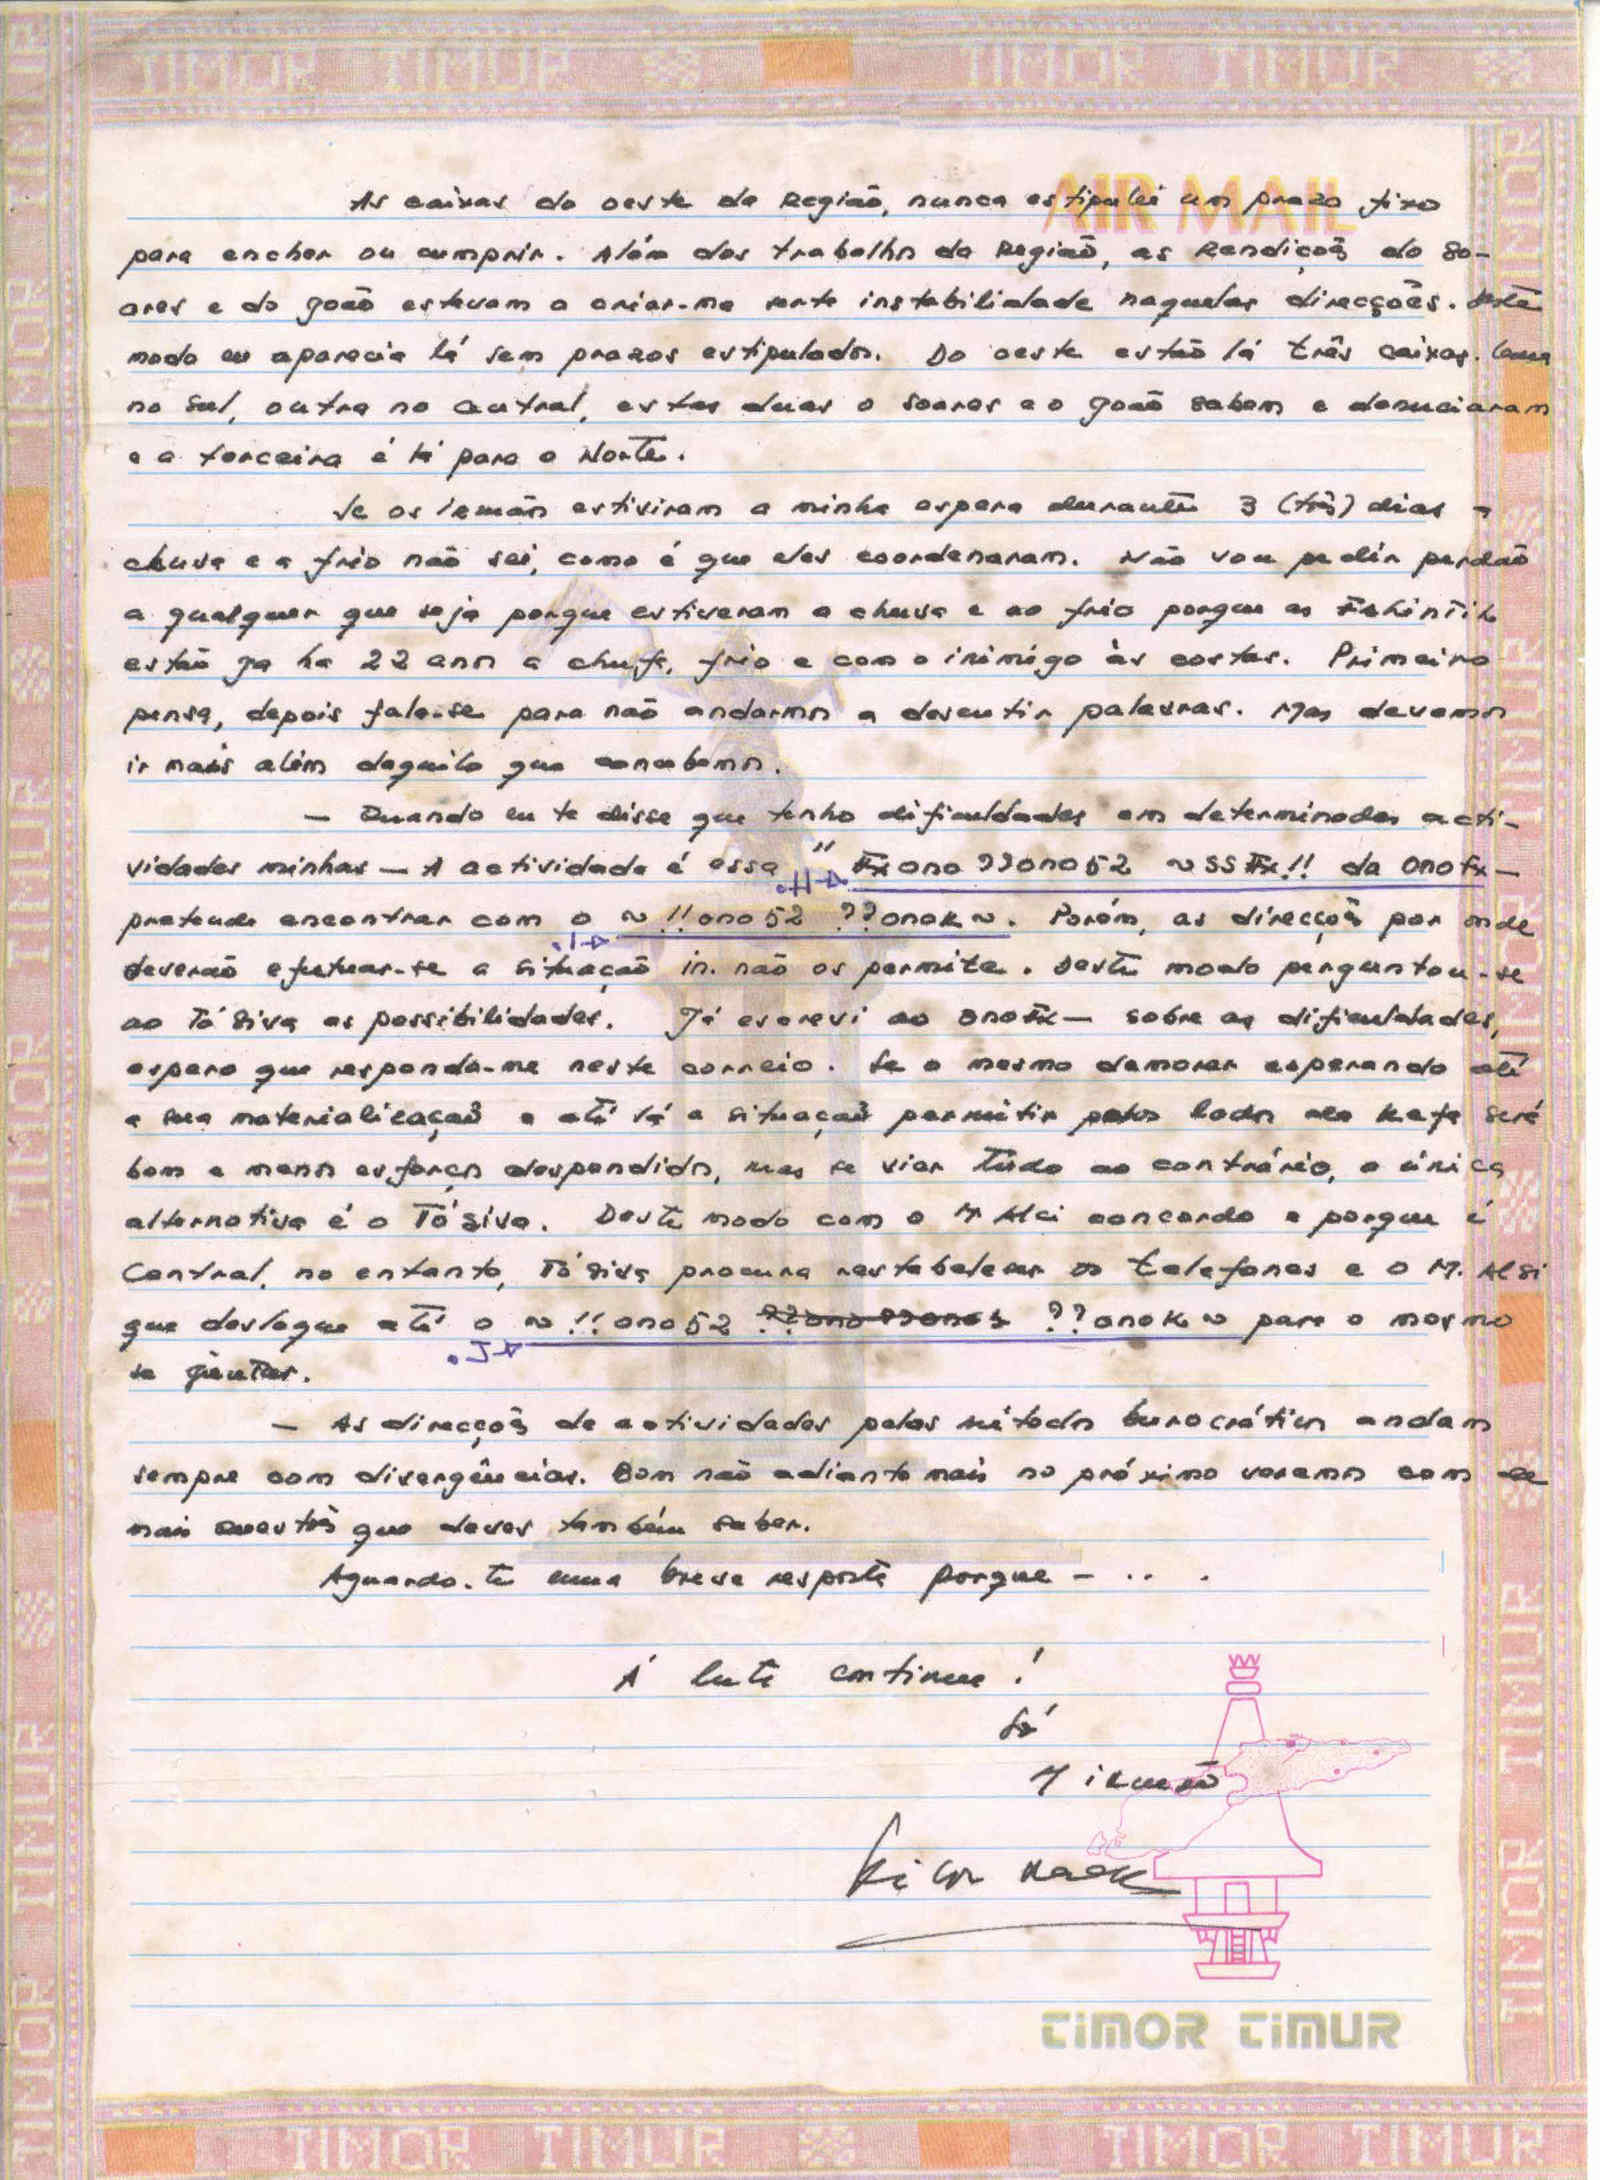 TIMOR TIMUR TIMOR TIMUR
AIR MAIL
As caixas do oeste da Região, nunca estipulei um prazo fixo
para encher ou cumprir. Além dos trabalhos da Região, as Rendições do So-
ares e do João estavam a criar-me certa instabilidade naquelas direcções. Deste
modo eu aparecia lá sem prazos estipulados. Do oeste estão lá três caixas. Uma
no Sul, outra no Central, estas duas o Soares e o João sabem e denuciaram
e a terceira é lá para o Norte.
Se os irmãos estiviram a minha espera durante 3 (três) dias a
chuva e a frio não sei, como é que eles coordenaram. Não vou pedir perdão
a qualquer que seja porque estiveram a chuva e ao frio porque as Falintil
estão ja ha 22 anos a chufa, frio e com o inimigo às costas. Primeiro
pensa, depois fala-se para não andarmos a descutir palavras. Mas devemos
ir mais além daquilo que concebemos.
— Quando eu te disse que tenho dificuldades em determinadas acti-
vidades minhas — A actividade é essa " Fxono ??ono52 ~SSFx!! da OnoFx—
.H→
pretende encontrar com o ~!!ono52 ??onoK~. Porém, as direcções por onde
.I→
deverão efutuar-se a situação in. não os permite. Deste modo perguntou-se
ao Tó Siva as possibilidades. Já escrevi ao onoFx— sobre as dificuldades,
espero que responda-me neste correio. Se o mesmo demorar esperando até
a sua materialização e até lá a situação permitir pelos lados do Kafe será
bom e menos esforços despendidos, mas se vier tudo ao contrário, a única
alternativa é o Tó Siva. Deste modo com o M. Alci concordo e porque é
Central, no entanto, Tó Siva procura restabelecer os telefones e o M. Alsi
que desloque até o ~!!ono52 ??onoK~ para o mesmo
.J→
se juntar.
— As direcções de actividades pelos métodos burocráticos andam
sempre com divergências. Bom não adianto mais no próximo veremos com de
mais questões que deves também saber.
Aguardo-te uma breve resposta porque — .. .
A luta continua!
Só
irmão
TIMOR TIMUR
TIMOR TIMUR TIMOR TIMUR